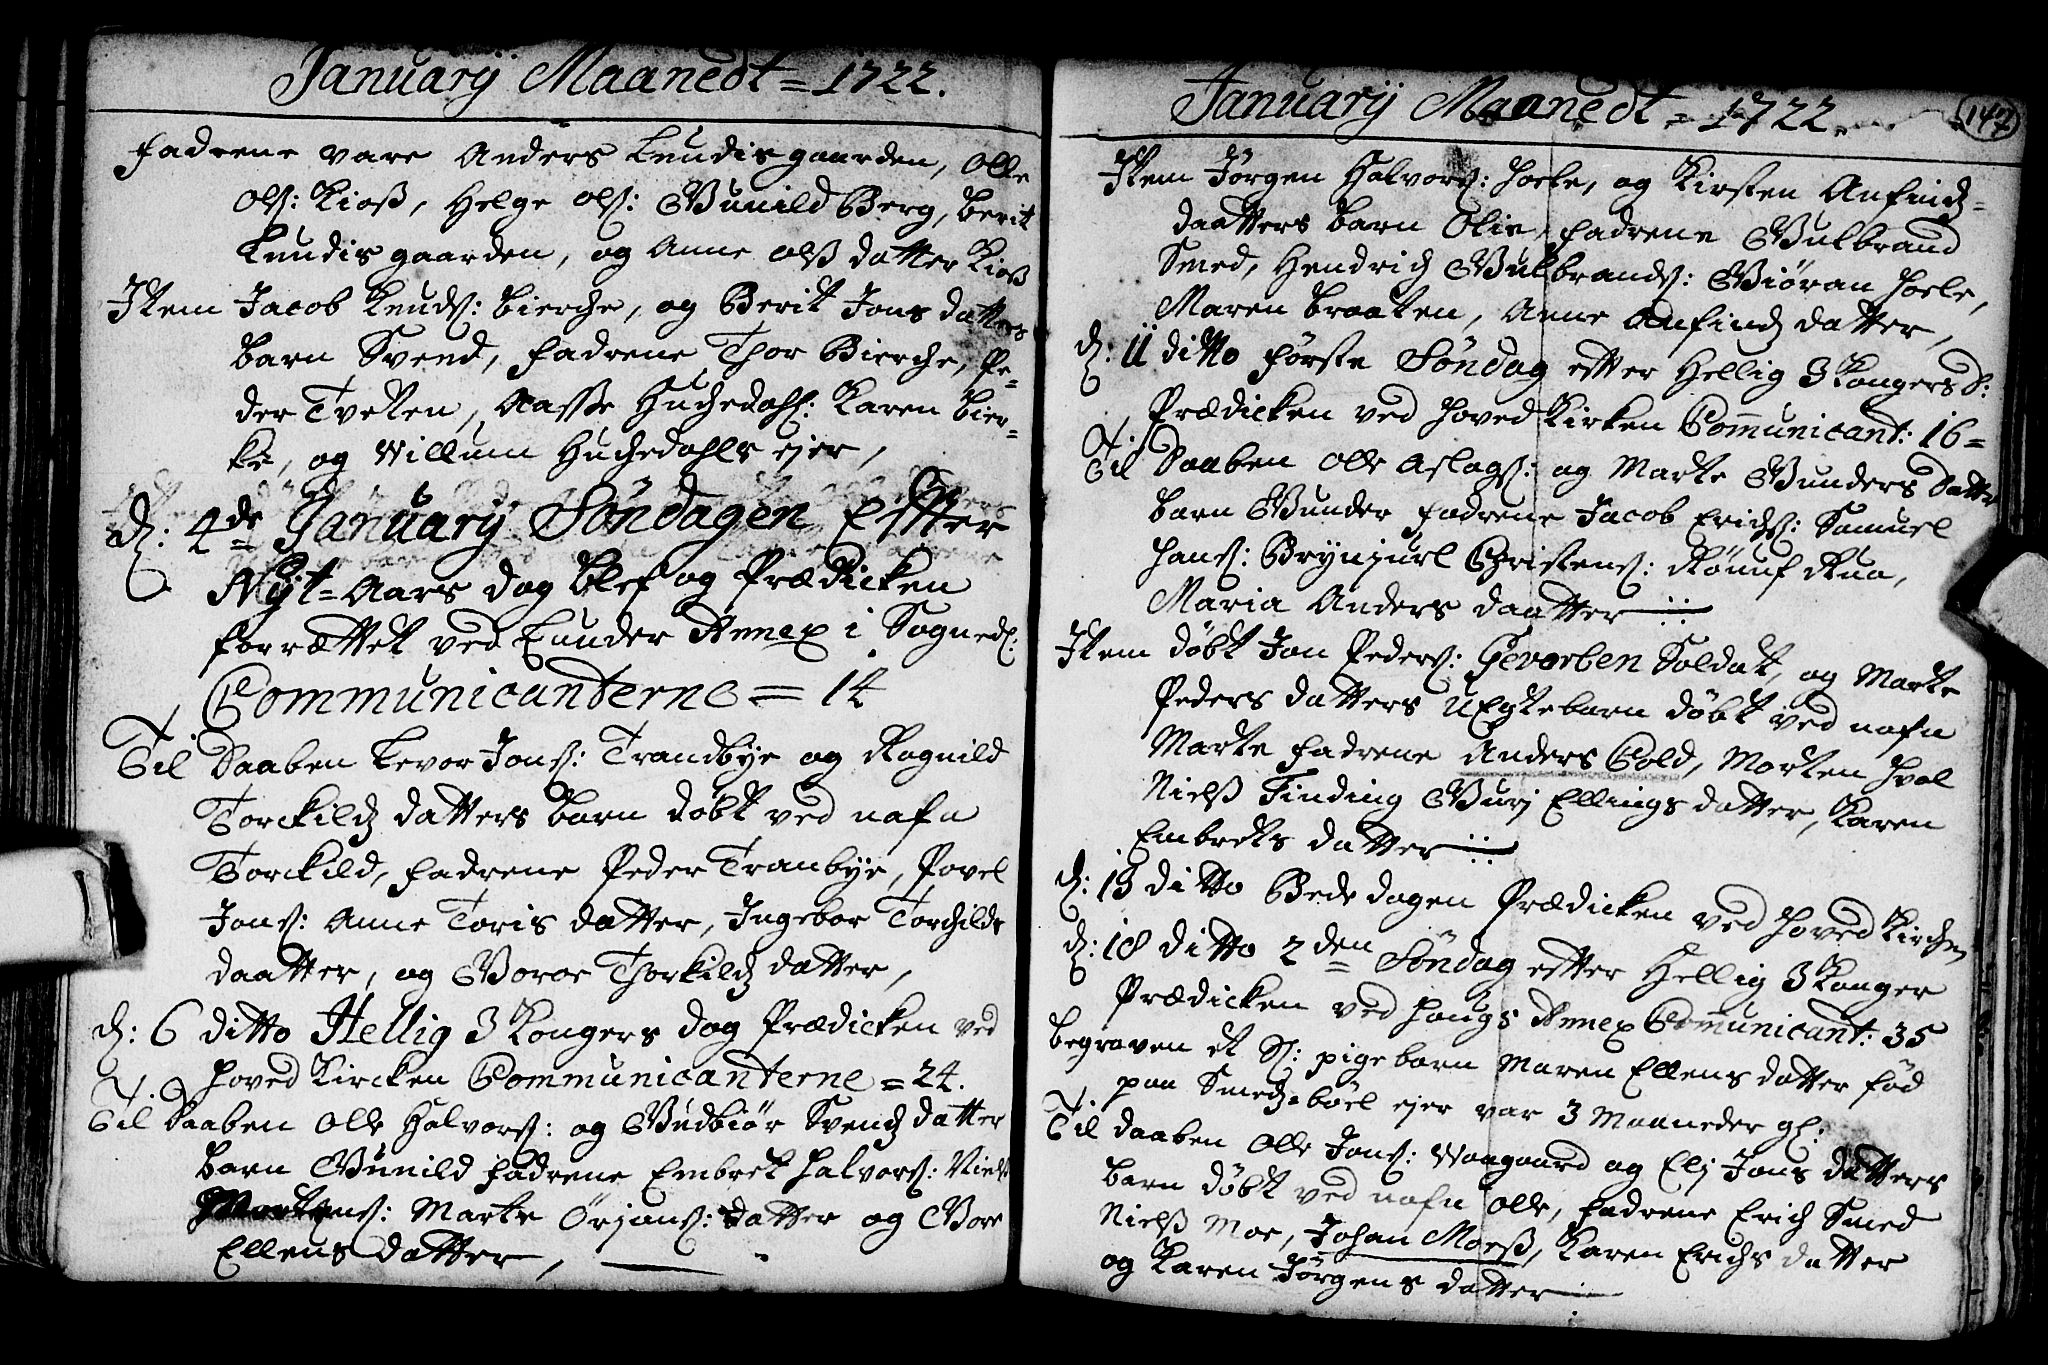 January Maanedt = 1722.
fadrene vare Anders Knudisgaarden, Olle
Ols: Kioß, Helge Ols: Gunild Berg, berit
Knudisgaarden, og Anne Olß datter Kioß
Item Jacob Knuds: bierche, og Berit Jons datters
barn Svend, fadrene Thor Bierche, Pe-
der Tveten, Aasße Huchedahl: Karen bier-
ke, og Willum Huchedahls ejer,
D: 4de January Söndagen Effter
Nyt-Aars dag blef og Prædicken
forrættet ved Lunder Annex i Sogned:
Communicanterne = 14
Til Daaben Levor Jons: Trandbye og Ragnild
Torckilds datters barn döbt ved nafn
Torckild, fadrene Peder Tranbye, Povel
Jons: Anne Toris datter, Ingebor Torchilds
daatter, og Goroe Thorkilds datter,
D: 6 ditto Hellig 3 Kongers dag Prædicken ved
Hoved Kircken Communicanterne = 24.
Til Daaben Olle Halvors: og Gudbiör Svends datter
barn Gunild fadrene Embret Halvors: Niels
Mortens: Marte Örjans: datter og Gore
Ellens datter,
January Maanedt = 1722.
147
Item Jörgen Halvors: Hoele, og Kirsten Anfinds-
daatters barn Olie, fadrene Gulbrand
Smed, Hendrich Gulbrands: Giöran Hoele,
Maren braaten, Anne Anfinds datter,
D: 11 ditto förste Söndag effter Hellig 3 Kongers D:
Prædicken ved Hoved Kirken Communicant: 16=
Til Daaben Olle Aslags: og Marte Gunders Datter
barn Gunder fadrene Jacob Erichs: Samuel
Hans: Brynjurl Christens: Rönnf Rua,
Maria Anders daatter
Item döbt Jon Peders: Gevorben Soldat, og Marte
Peders datters Uægtebarn döbt ved nafn
Marte fadrene Anders Cold, Morten Hval
Nielß Finding Gurj Ellings datter, Karen
Embrets datter
D: 13 ditto Bede dagen Prædicken ved Hoved Kirchen
D: 18 ditto 2den Söndag effter Hellig 3 Konger
Prædicken ved Hougs Annex Communicant: 35
begraven et Sl: pigebarn Maren Ellens datter föd
paa Smeds-böel ejer var 3 Maaneder gl:
Til daaben Olle Jons: Waagaard og Elj Jons datters
barn döbt ved nafn Olle, fadrene Erich Smed
Nielß Moe, Johan Moesß, Karen Erichs datter
og Karen Jörgens datter